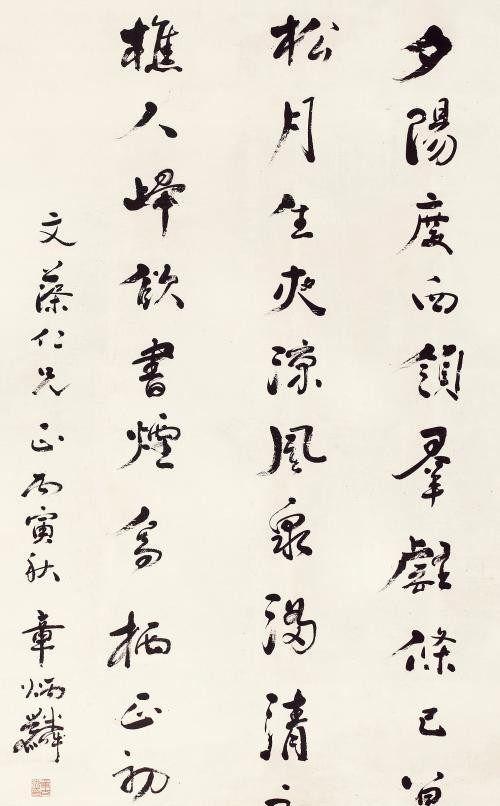 夕陽度西領羣壑倏已
松月生夜涼風泉滿清
樵人歸欲盡煙鳥栖正初
文藻仁兄正丙寅秋 章炳麟